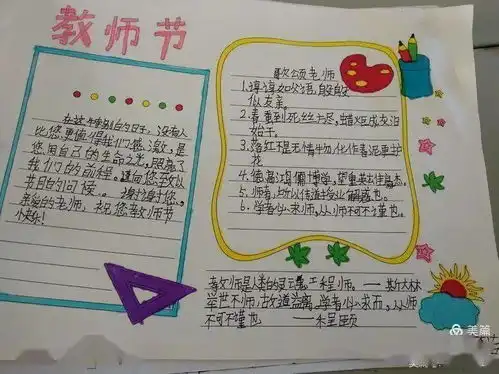 教师节
在这个特别的日子，没有人
比您更值得我们感激，是
您用自己的生命之光，照亮了
我们的前程。谨向您致以
节日的问候。谢谢您，
亲爱的老师，祝您教师节
快乐！
歌颂老师
1.谆谆如父语，殷殷
似友亲。
2.春蚕到死丝方尽，蜡炬成灰泪
始干。
3.落红不是无情物，化作春泥更护
花
5.师者，所以传道授业解惑也。
6.学者必求师，从师不可不谨也。
教师是人类的灵魂工程师。——斯大林
举世不师，故道益离。学者必求师，从师
不可不谨也 ——程颐
美篇